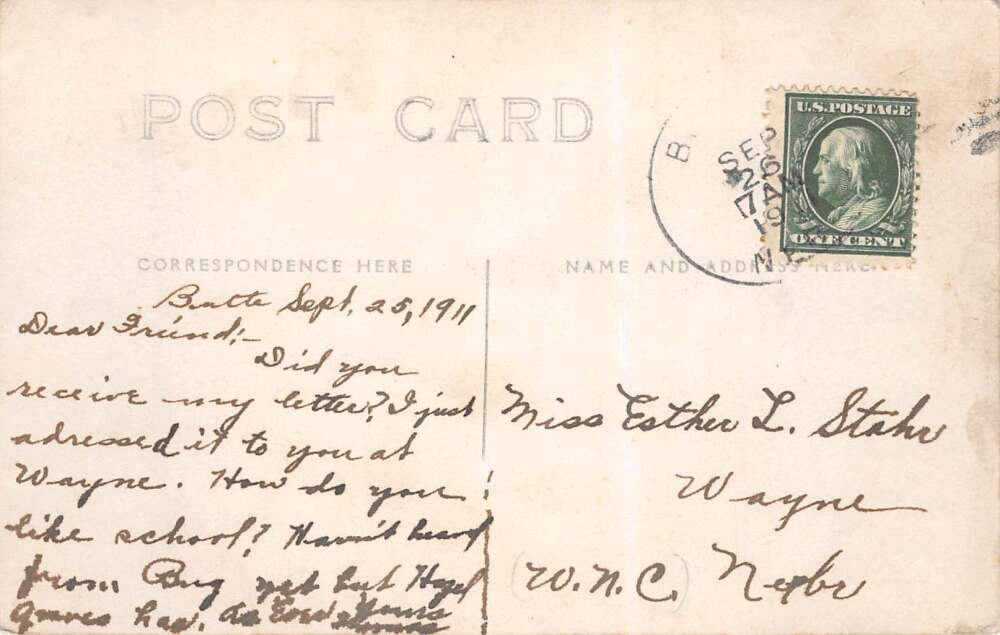 POST CARD
CORRESPONDENCE HERE
NAME AND ADDRESS HERE
U.S. POSTAGE
ONE CENT
B
SEP
26
7 AM
19
NE
Butte Sept. 25, 1911
Dear Friend:-
Did you
receive my letter? I just
adressed it to you at
Wayne. How do you
like school? Haven't heard
from Bug yet but Hazel
Graves has. As Ever Yours
Miss Esther L. Stahr
Wayne
(W.N.C.) Nebr